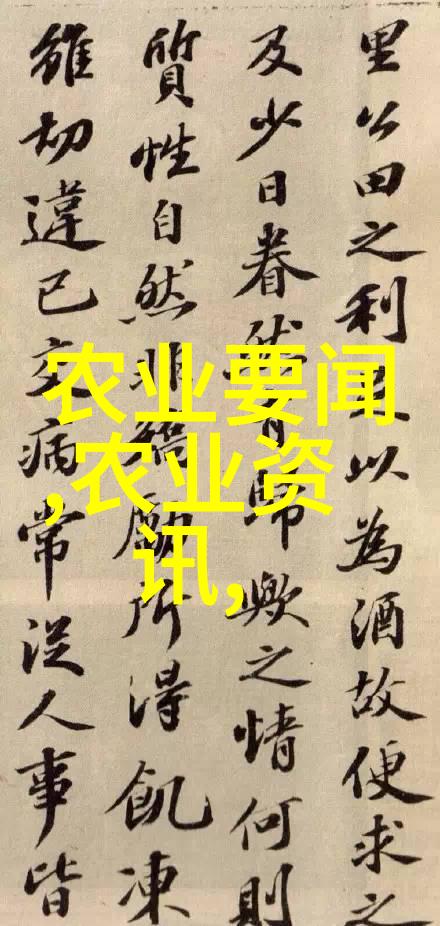 里公田之利足以為酒故便求之
及少日眷然有歸歟之情何則
質性自然非矯勵所得飢凍
雖切違己交病常從人事皆
农业要闻
,农业资
讯,